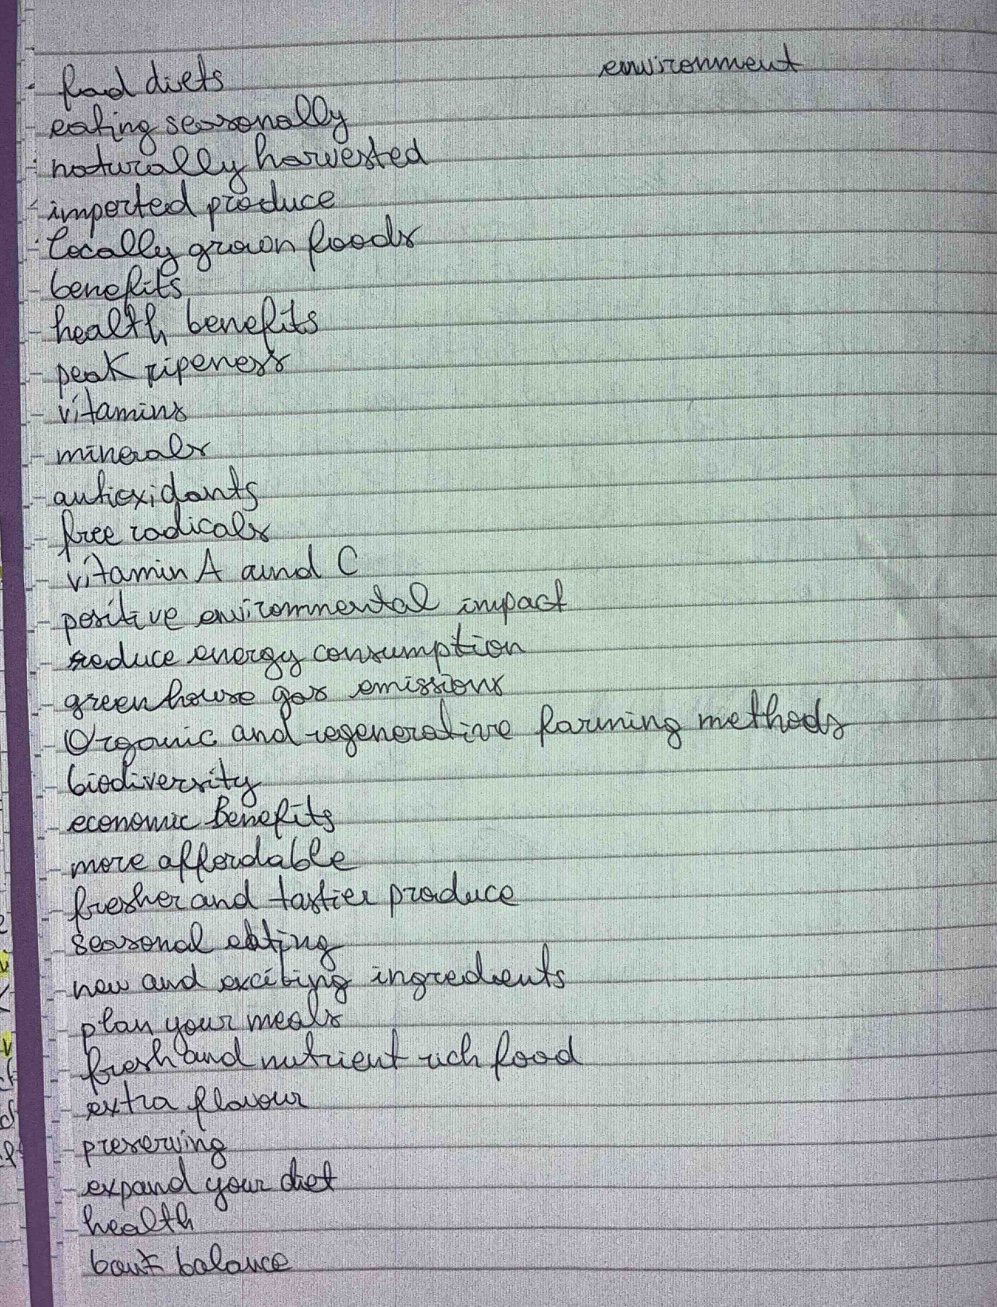 - fad diets
environment
- eating seasonally
- naturally harvested
- imported produce
- locally grown foods
- benefits
- health benefits
- peak ripeness
- vitamins
- minerals
- antioxidants
- free radicals
- vitamin A and C
- positive environmental impact
- reduce energy consumption
- greenhouse gas emissions
- Organic and regenerative farming methods
- biodiversity
- economic benefits
- more affordable
- fresher and tastier produce
- seasonal eating
- new and exciting ingredients
- plan your meals
- fresh and nutrient rich food
- extra flavour
- preserving
- expand your diet
- health
balance